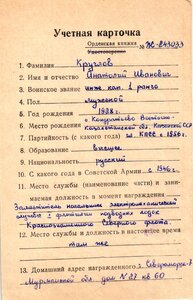 Учетная карточка
Орденская книжка № ЖС-243033
Удостоверение
1. Фамилия Круглов
2. Имя и отчество Анатолий Иванович
3. Воинское звание инж. кап. 1 ранга
4. Пол мужской
5. Год рождения 1928 г.
6. Место рождения Восточно-
Казахстанской обл. Казахской ССР
7. Партийность (с какого года) чл. КПСС с 1956 г.
8. Образование высшее
9. Национальность русский
10. С какого года в Советской Армии с 1946 г.
11. Место службы (наименование части) и занимаемая должность в момент награждения
Заместитель начальника электромеханической
службы 1 флотилии подводных лодок
Краснознаменного Северного флота
12. Место службы и должность в настоящее время
там же
13. Домашний адрес награжденного г. Североморск-7
Мурманской обл. дом № 27 кв 60